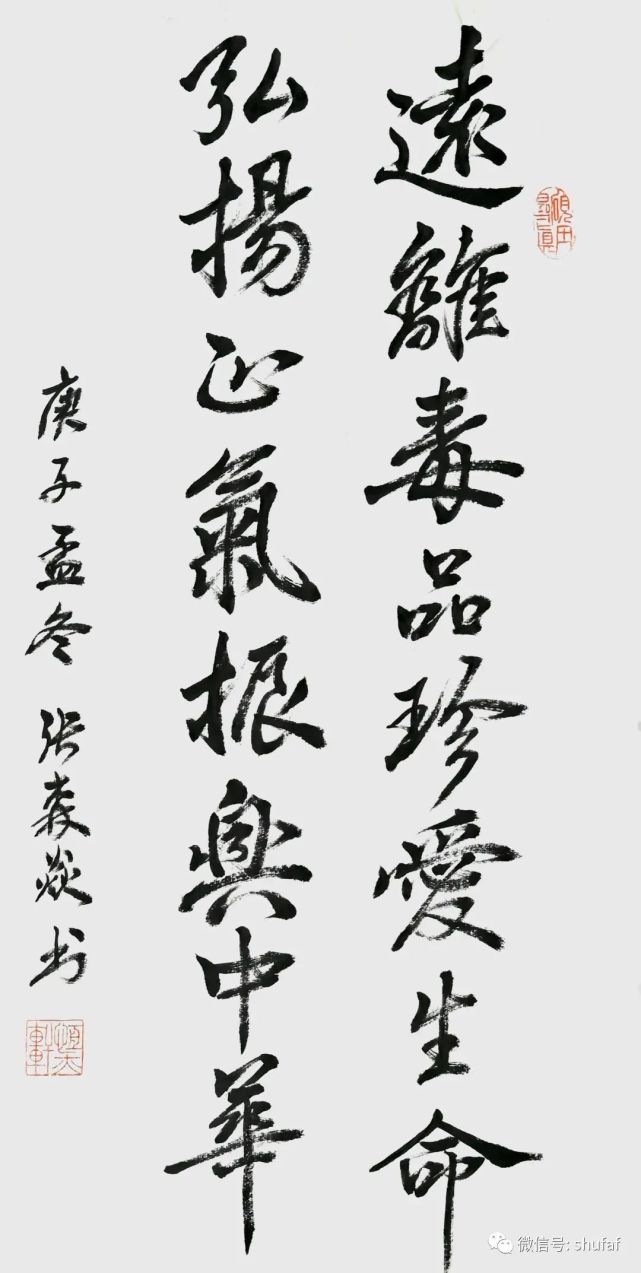 遠離毒品珍愛生命
弘揚正氣振興中華
庚子孟冬 张森焱书
微信号: shufaf